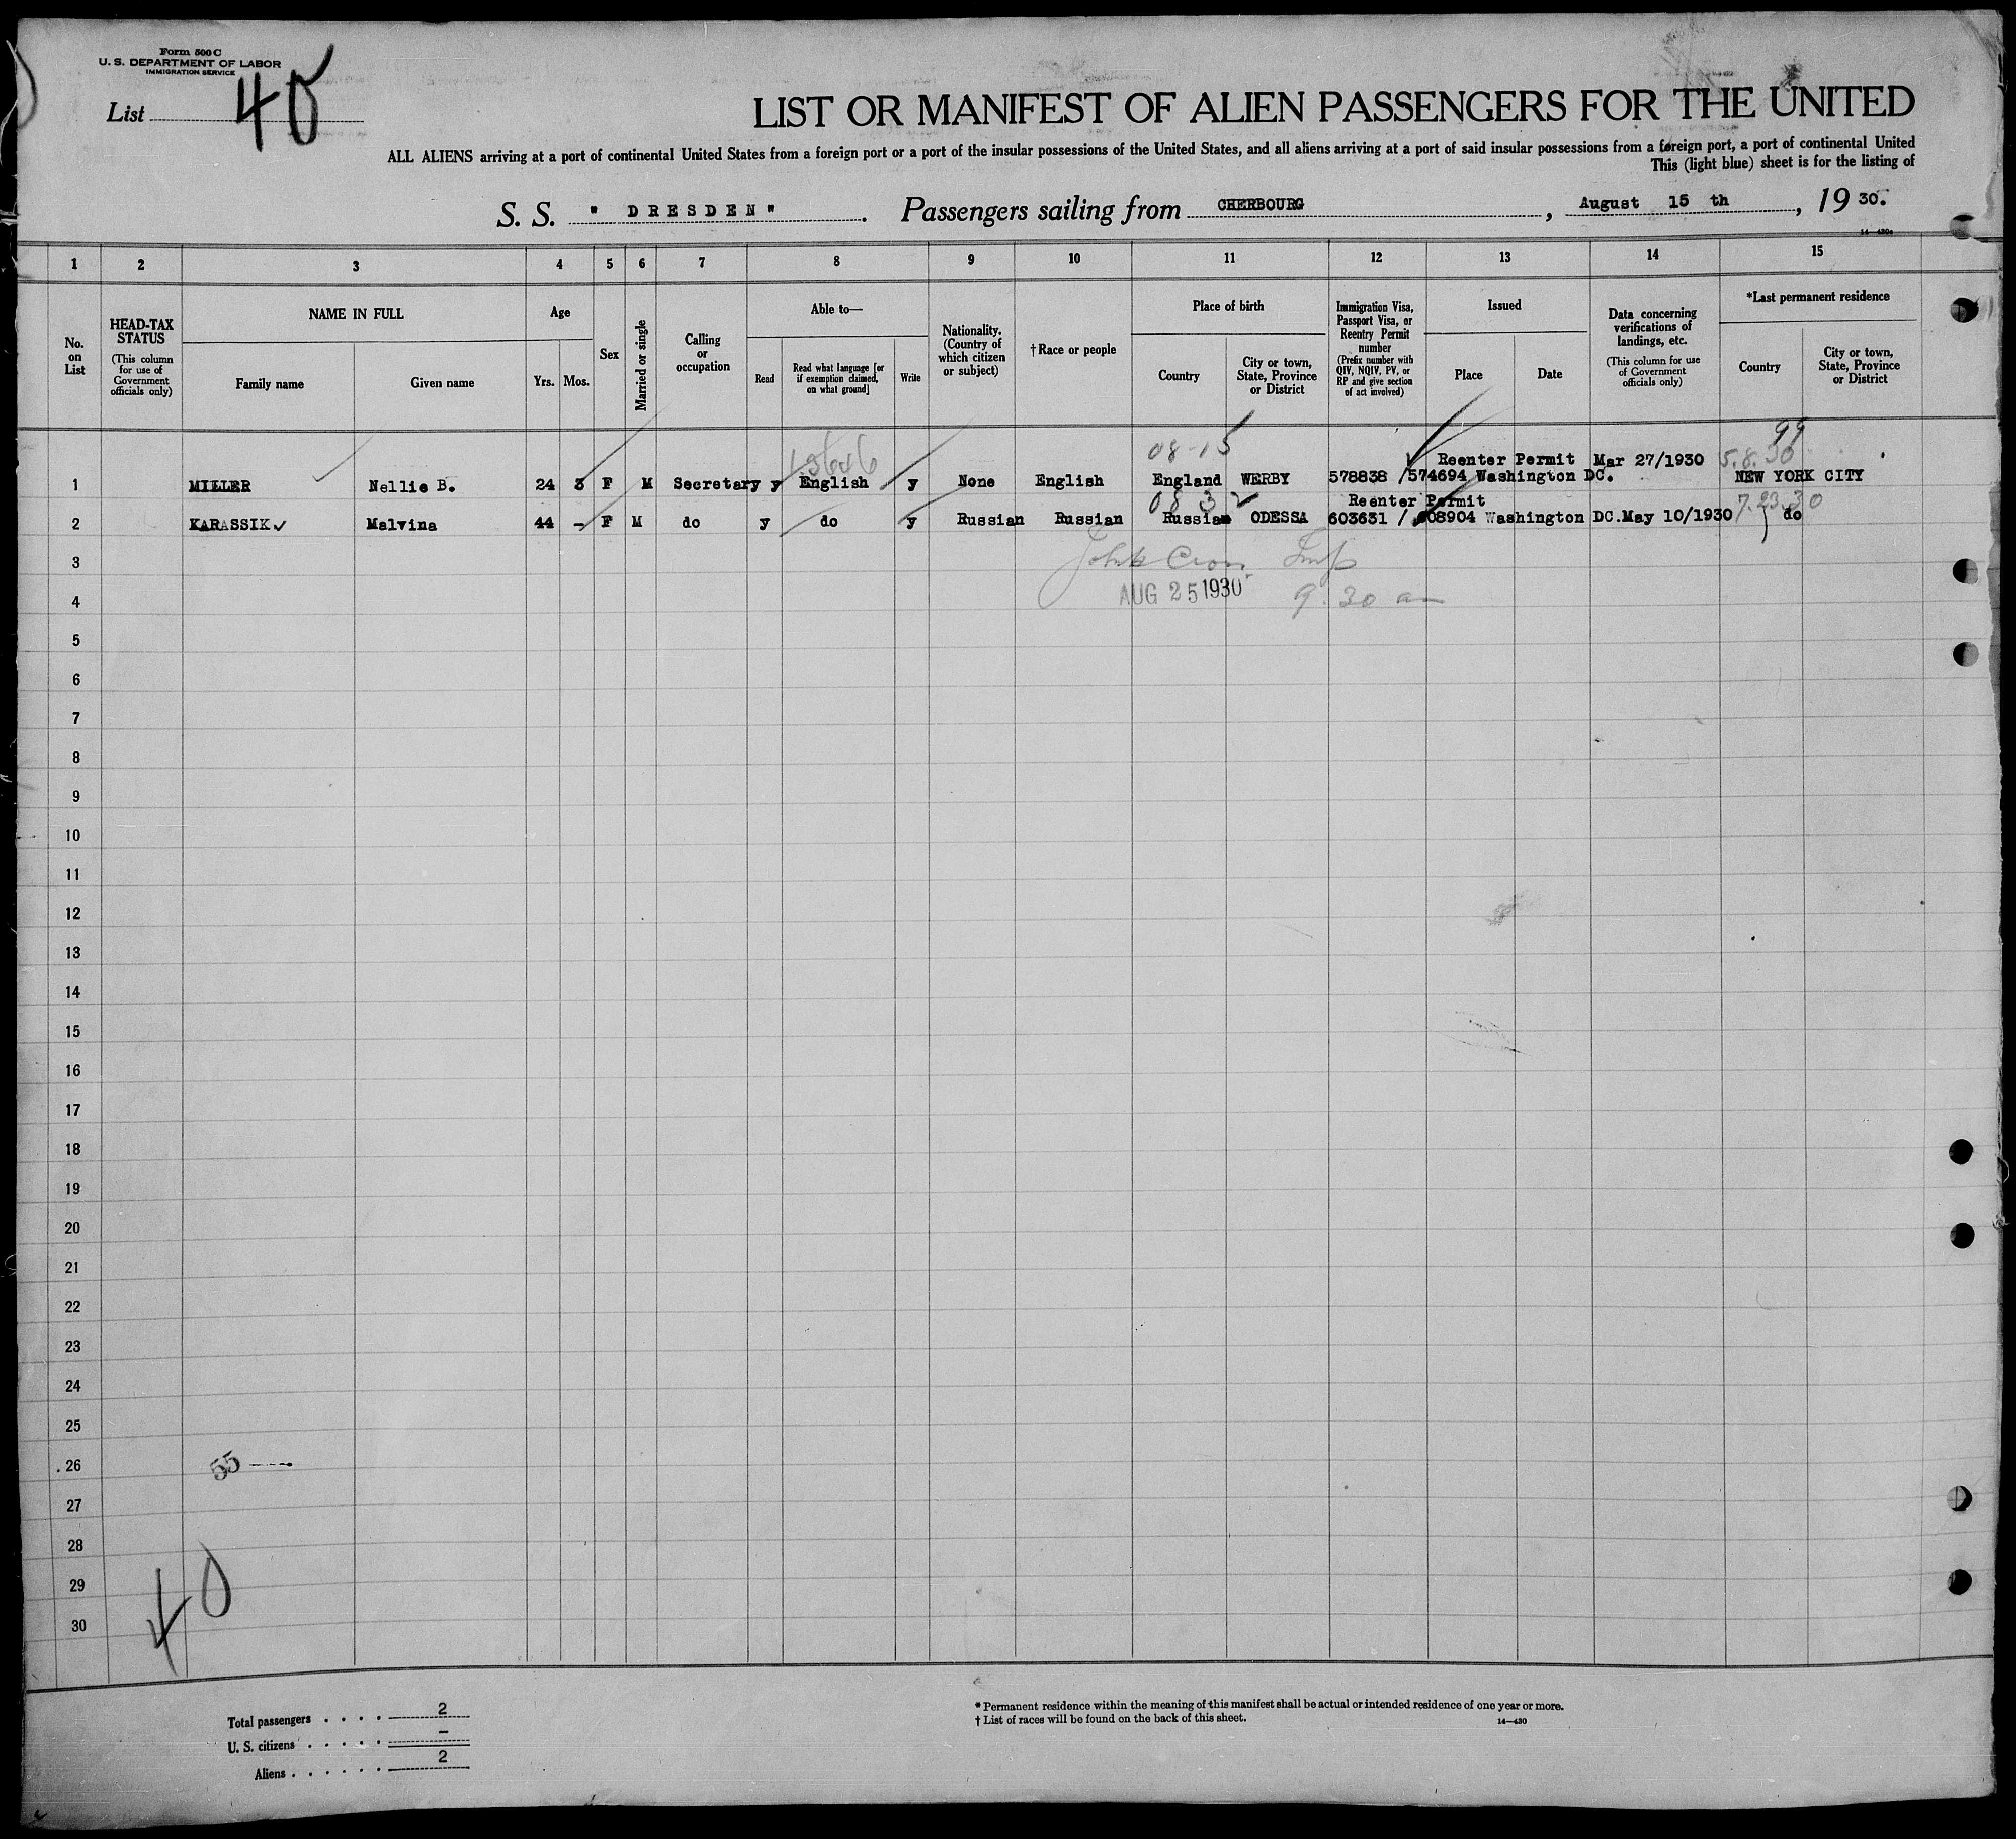 Form 500 C
U. S. DEPARTMENT OF LABOR
IMMIGRATION SERVICE
List 40
LIST OR MANIFEST OF ALIEN PASSENGERS FOR THE UNITED
ALL ALIENS arriving at a port of continental United States from a foreign port or a port of the insular possessions of the United States, and all aliens arriving at a port of said insular possessions from a foreign port, a port of continental United
This (light blue) sheet is for the listing of
S. S. " DRESDEN" . Passengers sailing from CHERBOURG , August 15 th , 19 30.
14—430a
1 2 3 4 5 6 7 8 9 10 11 12 13 14 15
No. on List
HEAD-TAX STATUS (This column for use of Government officials only)
NAME IN FULL
Family name Given name
Age
Yrs. Mos.
Sex
Married or single
Calling or occupation
Able to—
Read
Read what language [or if exemption claimed, on what ground]
Write
Nationality. (Country of which citizen or subject)
†Race or people
Place of birth
Country
City or town, State, Province or District
Immigration Visa, Passport Visa, or Reentry Permit number (Prefix number with QIV, NQIV, PV, or RP and give section of act involved)
Issued
Place Date
Data concerning verifications of landings, etc. (This column for use of Government officials only)
*Last permanent residence
Country
City or town, State, Province or District
99
08-15
Reenter Permit Mar 27/1930 5.8.30
1 MILLER Nellie B. 24 3 F M Secretary y English y None English England WERBY 578838 /574694 Washington DC. NEW YORK CITY
08 32 Reenter Permit 7.23.30
2 KARASSIK Malvina 44 - F M do y do y Russian Russian Russian ODESSA 603631 / 608904 Washington DC.May 10/1930 do
3
4 AUG 25 1930 9.30 am
5
6
7
8
9
10
11
12
13
14
15
16
17
18
19
20
21
22
23
24
25
26 55
27
28
29
30
40
Total passengers . . . . 2
U. S. citizens . . . . . -
Aliens . . . . . . 2
* Permanent residence within the meaning of this manifest shall be actual or intended residence of one year or more.
† List of races will be found on the back of this sheet.
14—430